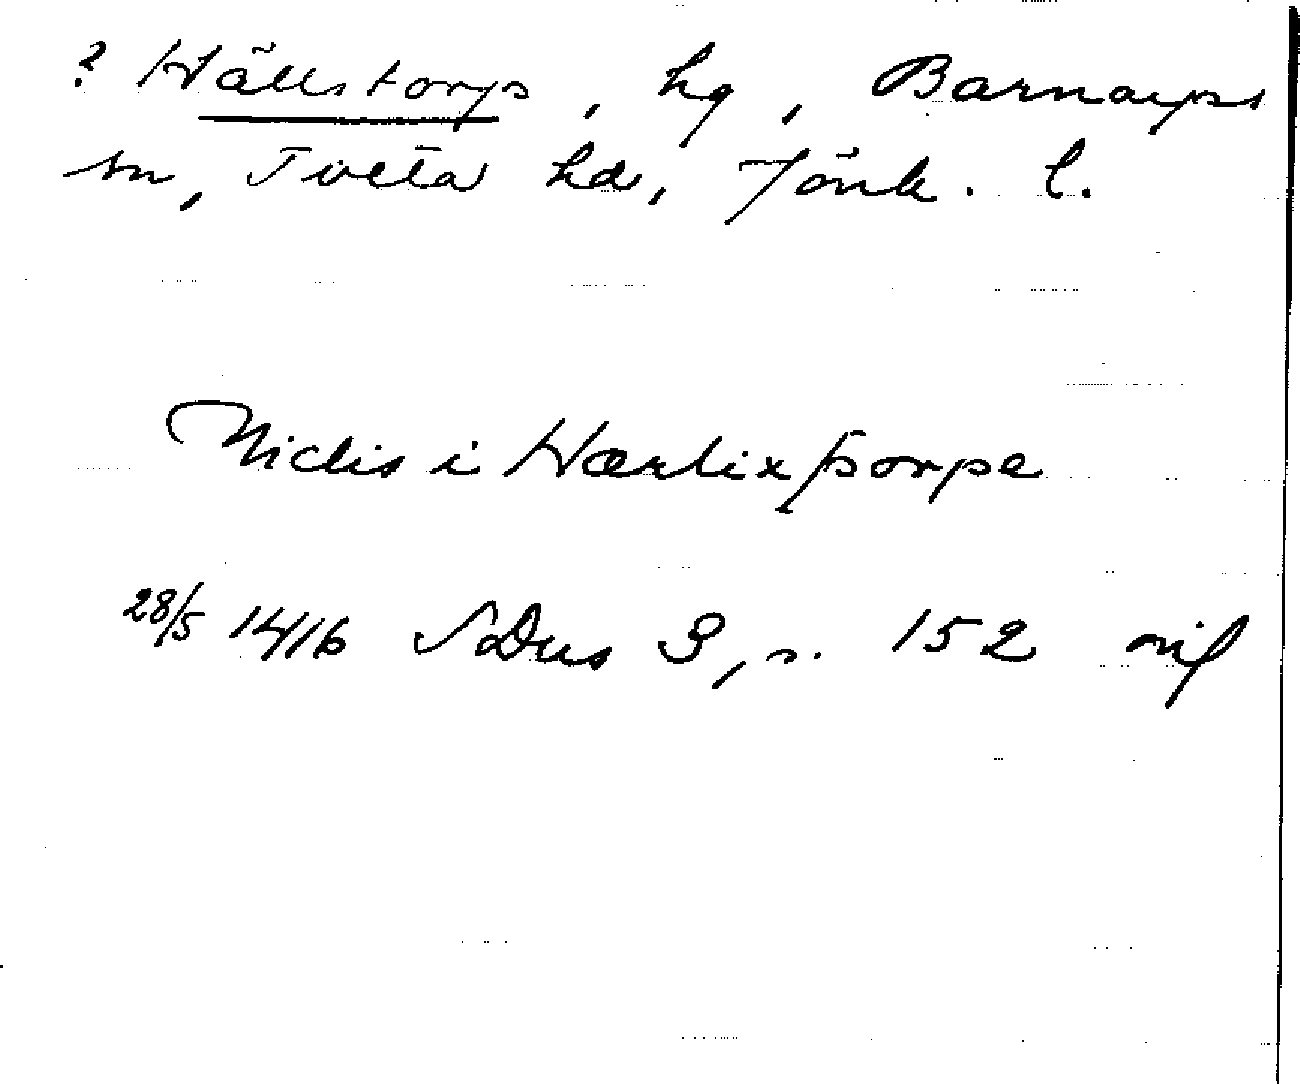 ? Hällstorp, hg, Barnarps
sn, Tveta hd, Jönk. l.
Niclis i Hærlixþorpe
28/5 1416 SDns 3, s. 152 oif